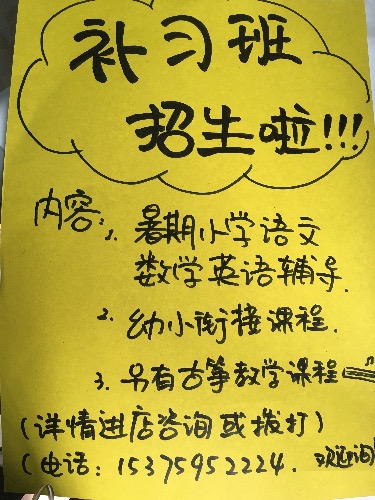 补习班
招生啦!!!
内容: 1. 暑期小学语文
数学英语辅导.
2. 幼小衔接课程.
3. 另有古筝教学课程
(详情进店咨询或拨打)
(电话: 15375952224. 欢迎询)